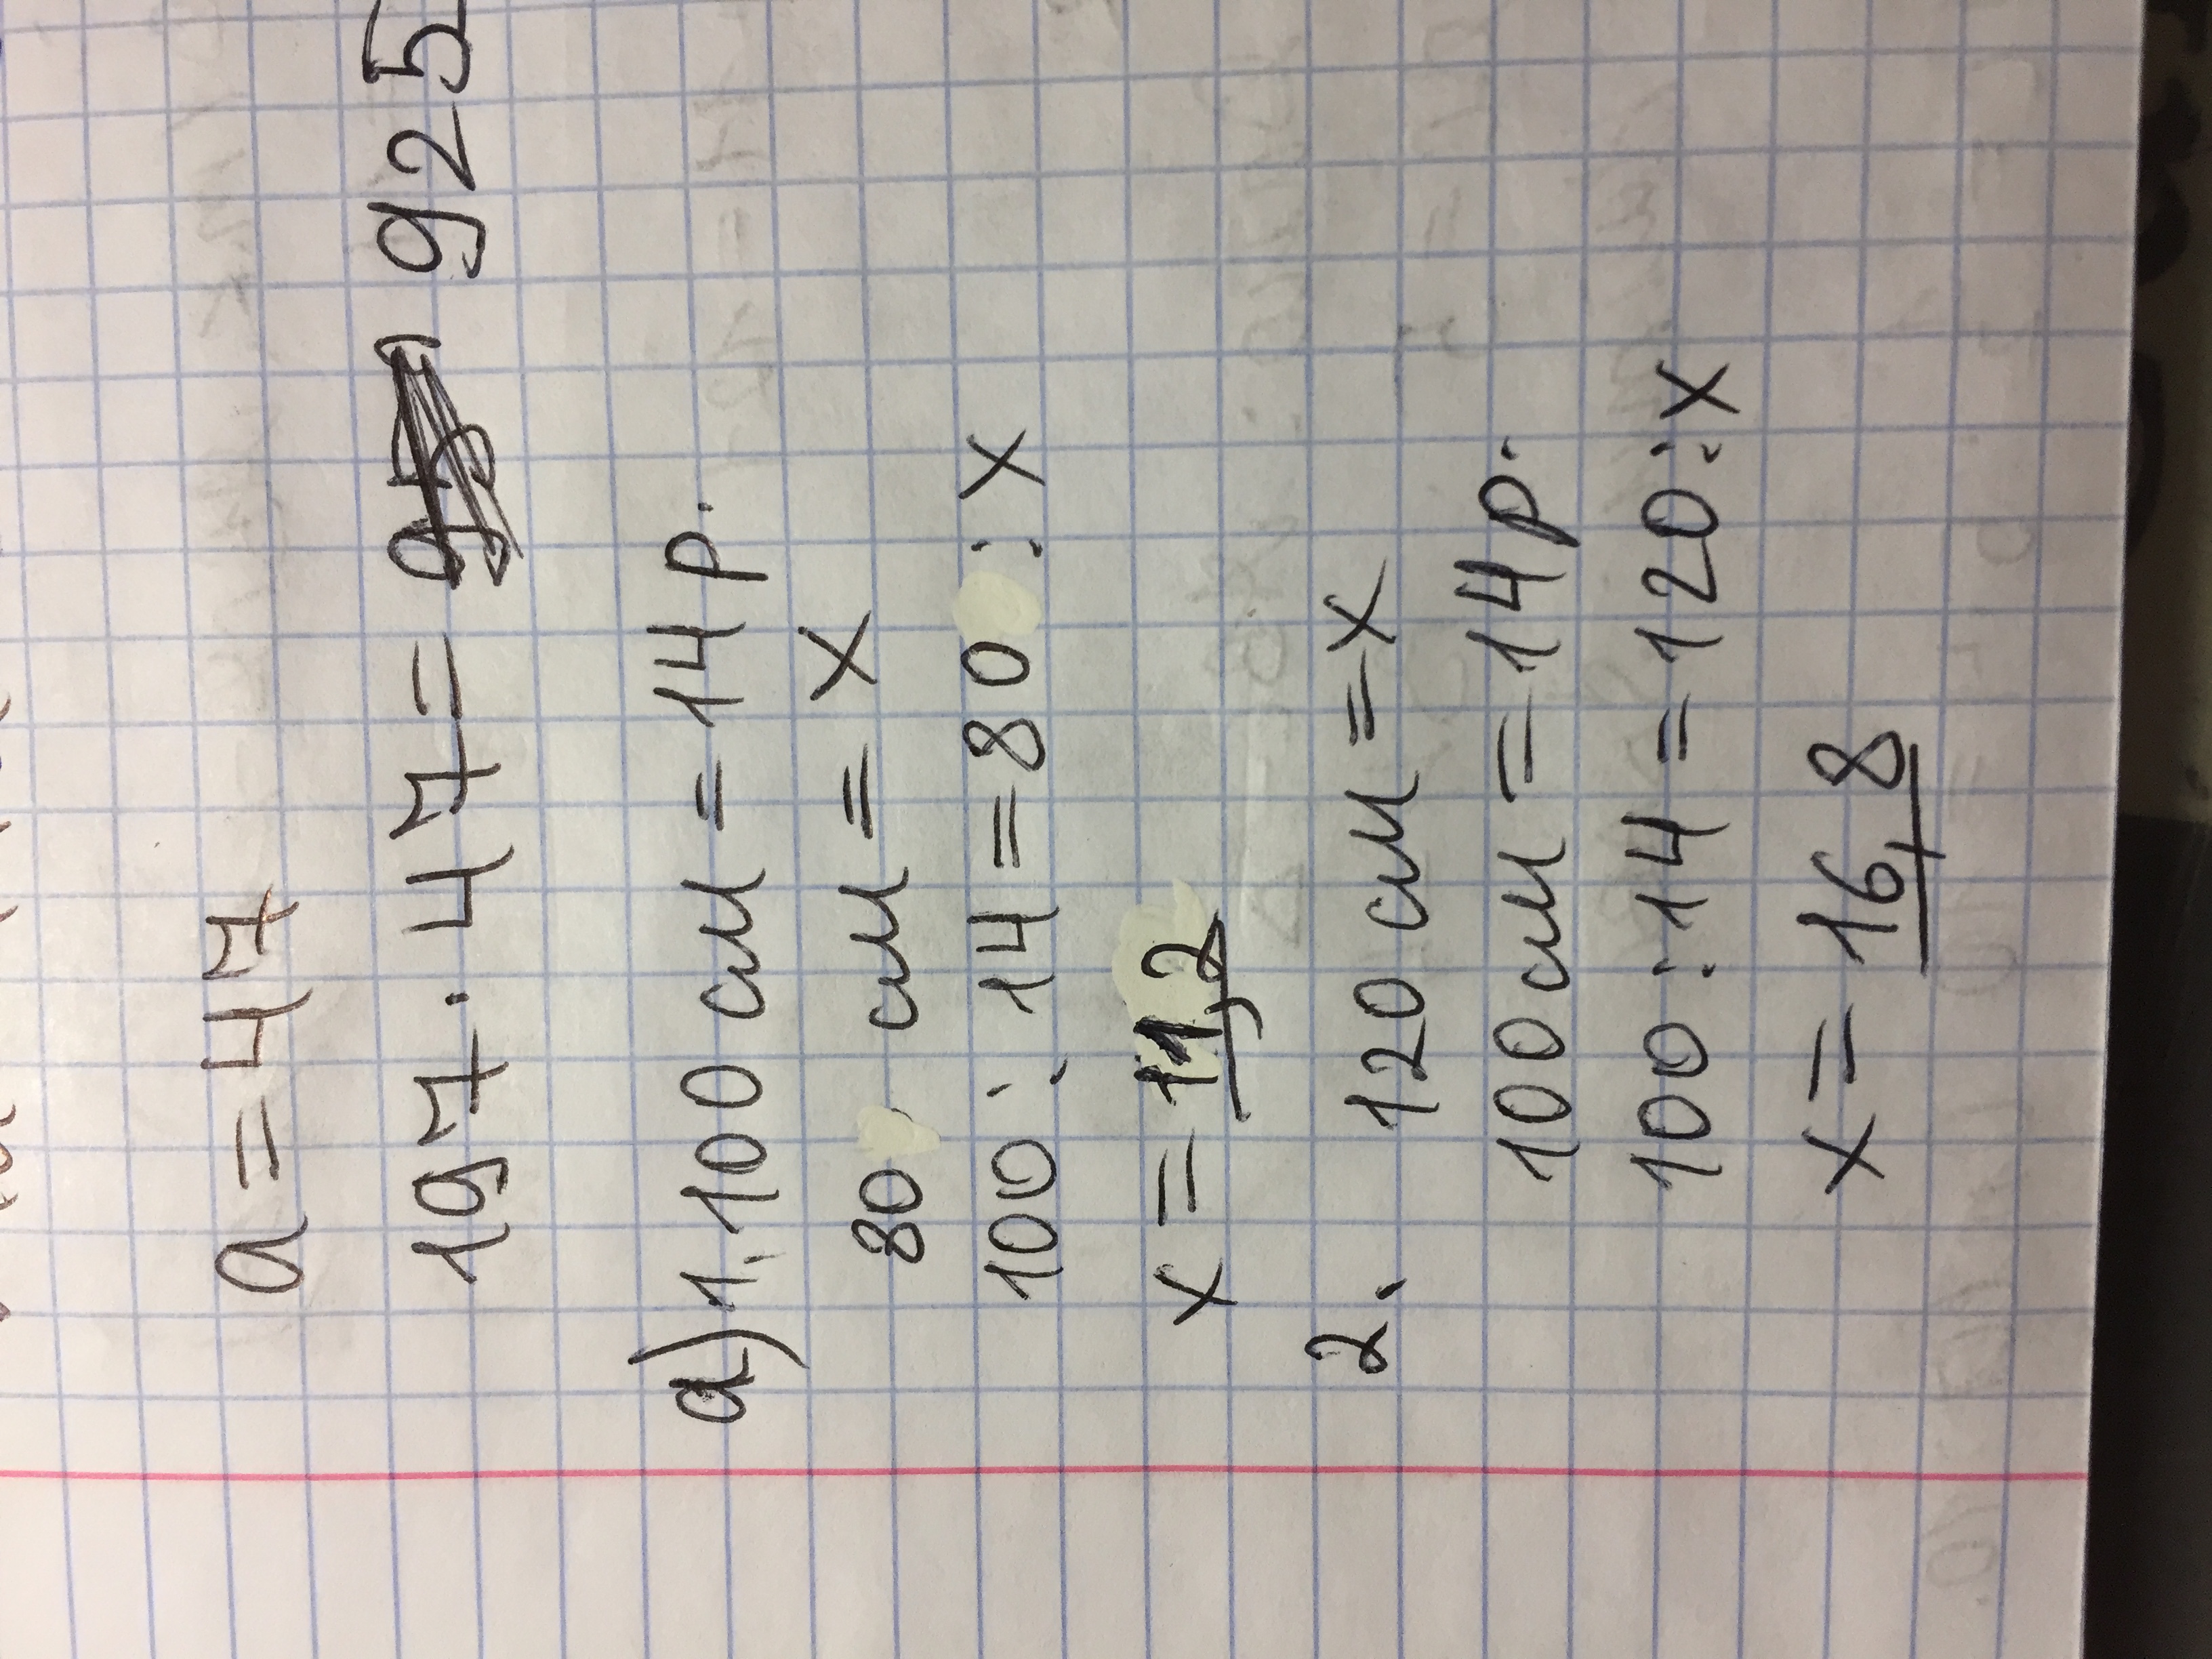 a = 47
197 · 47 = 925
а) 1. 100 см = 14 р.
80 см = x
100 : 14 = 80 : x
x = 11,2
2. 120 см = x
100 см = 14 р.
100 : 14 = 120 : x
x = 16,8